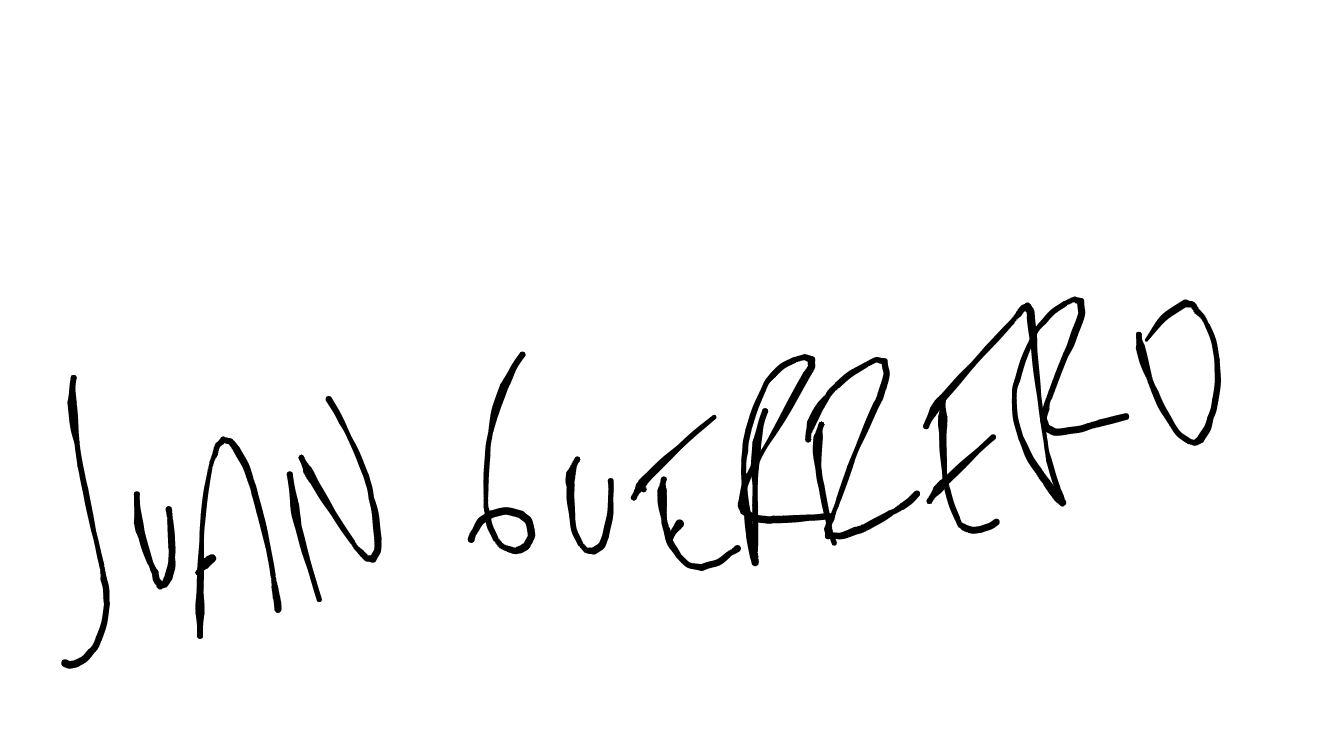 JUAN GUERRERO